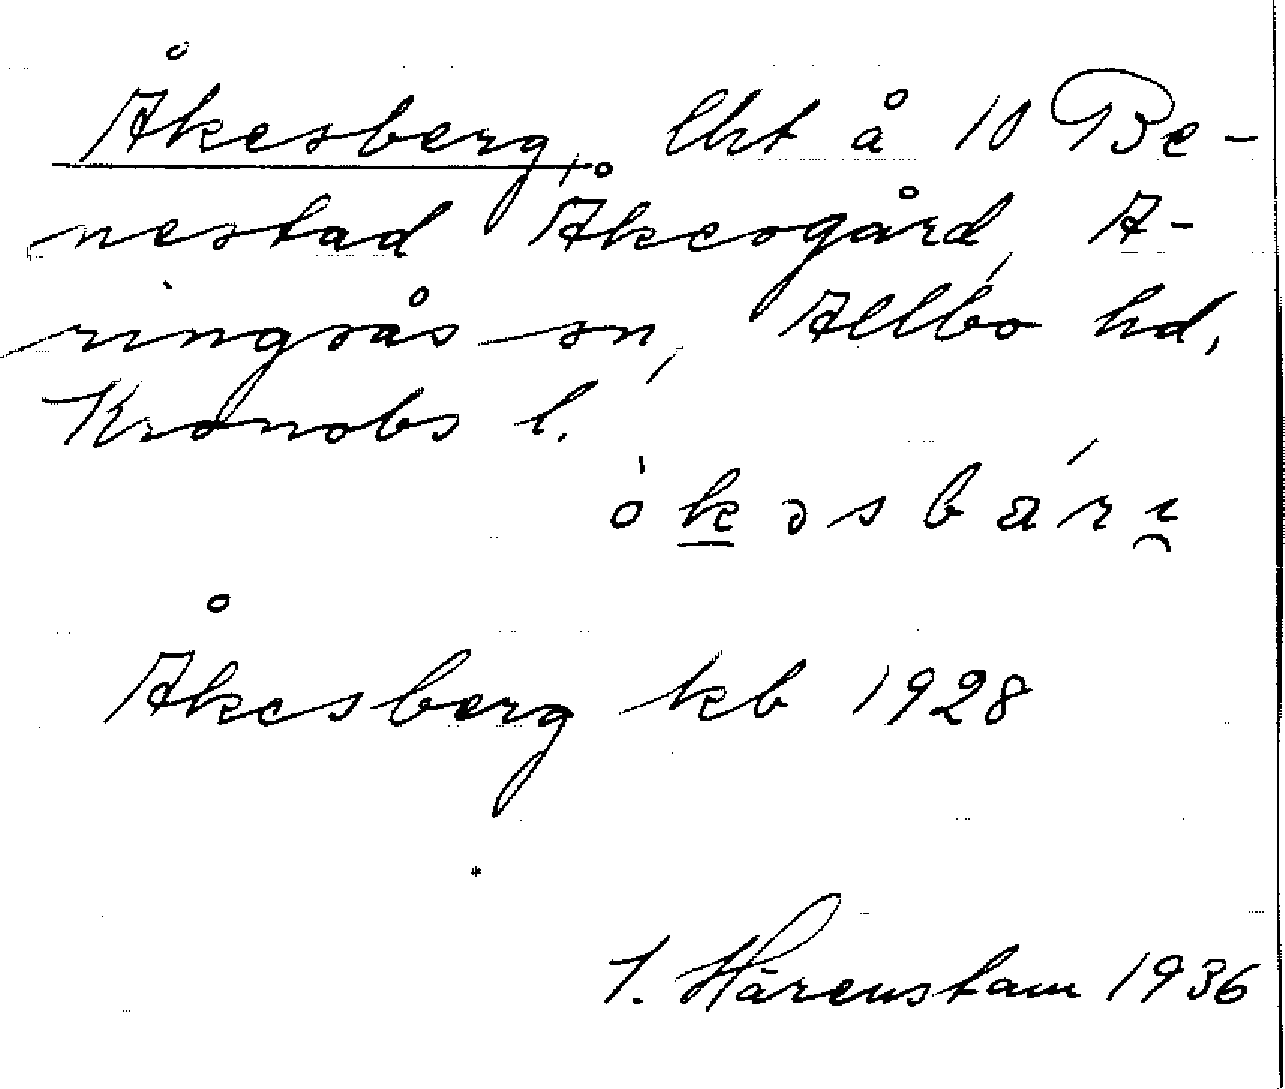 Åkesberg, lht å 10 Be-
nestad Åkesgård, A-
ringsås sn, Allbo hd,
Kronobs l.
Åkesberg kb 1928
I. Härenstam 1936